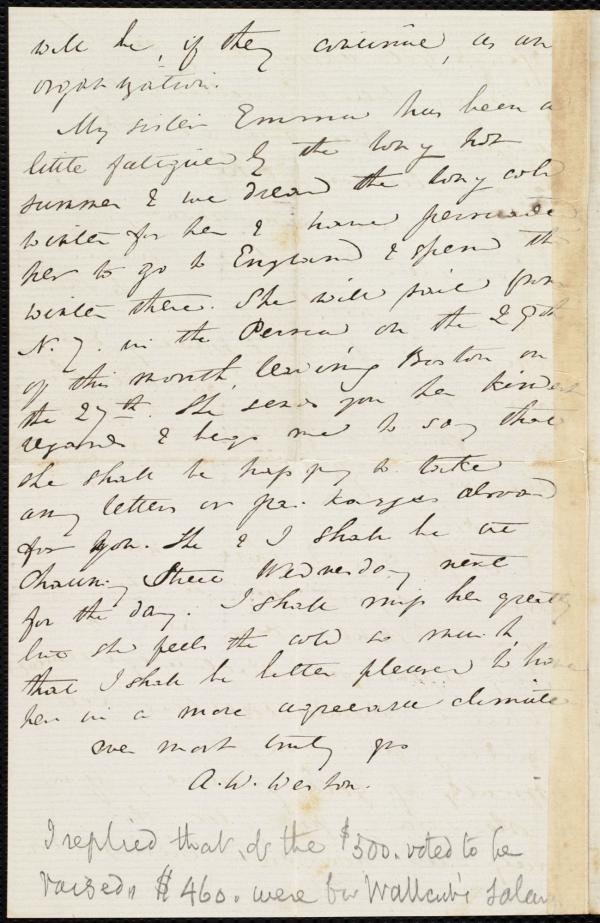 will be, if they continue, as an
organization.
My sister Emma has been a
little fatigued by the long hot
summer & we dread the long cold
winter for her & have persuaded
her to go to England & spend the
winter there. She will sail from
N. Y. in the Persia on the 29th
of this month, leaving Boston on
the 27th. She sends you her kindest
regards & begs me to say that
she shall be happy to take
any letters or packages abroad
for you. She & I shall be at
Chauncy Street Wednesday next
for the day. I shall miss her greatly
but she feels the cold so much,
that I shall be better pleased to have
her in a more agreeable climate
most truly yrs
A. W. Weston.
I replied that, of the $500. voted to be
raised, $460. were for Wallcut's salary